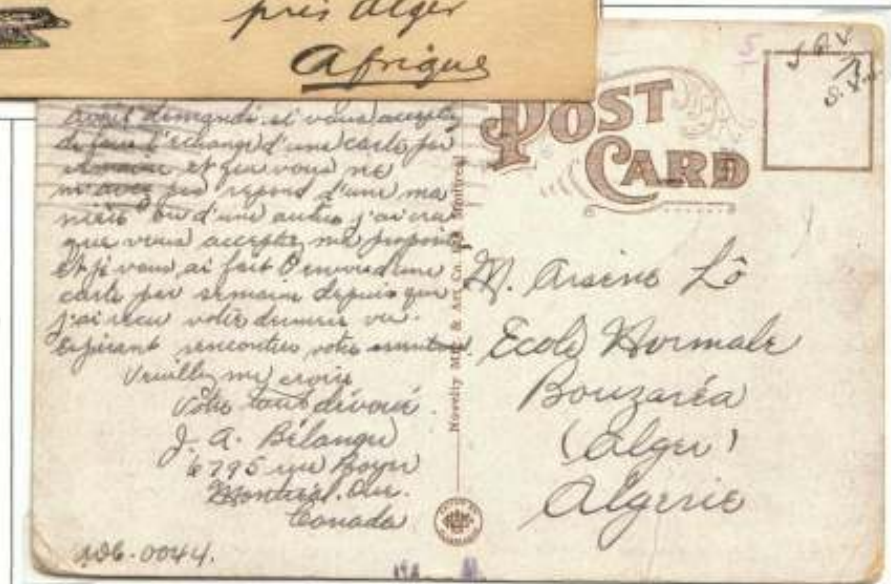 près Alger
Afrique
avait demandé si vous acceptez
de faire l'échange d'une carte par
semaine et que vous ne
m'avez pas repond d'une ma
nière ou d'une autre j'ai cru
que vous acceptez ma proposition
et je vous ai fait l'envoie d'une
carte par semaine depuis que
j'ai recu votre derniere vue.
Espérant rencontrer votre
Veuillez me croire
Votre tout dévoué.
J. A. Bélanger
6795 rue Boyer
Montréal. Que.
Canada
A96-0044.
Novelty Mfg & Art Co. Ltd. Montreal
POST
CARD
5
M. Arsene Lô
Ecole Normale
Bouzaréa
(Alger)
Algerie